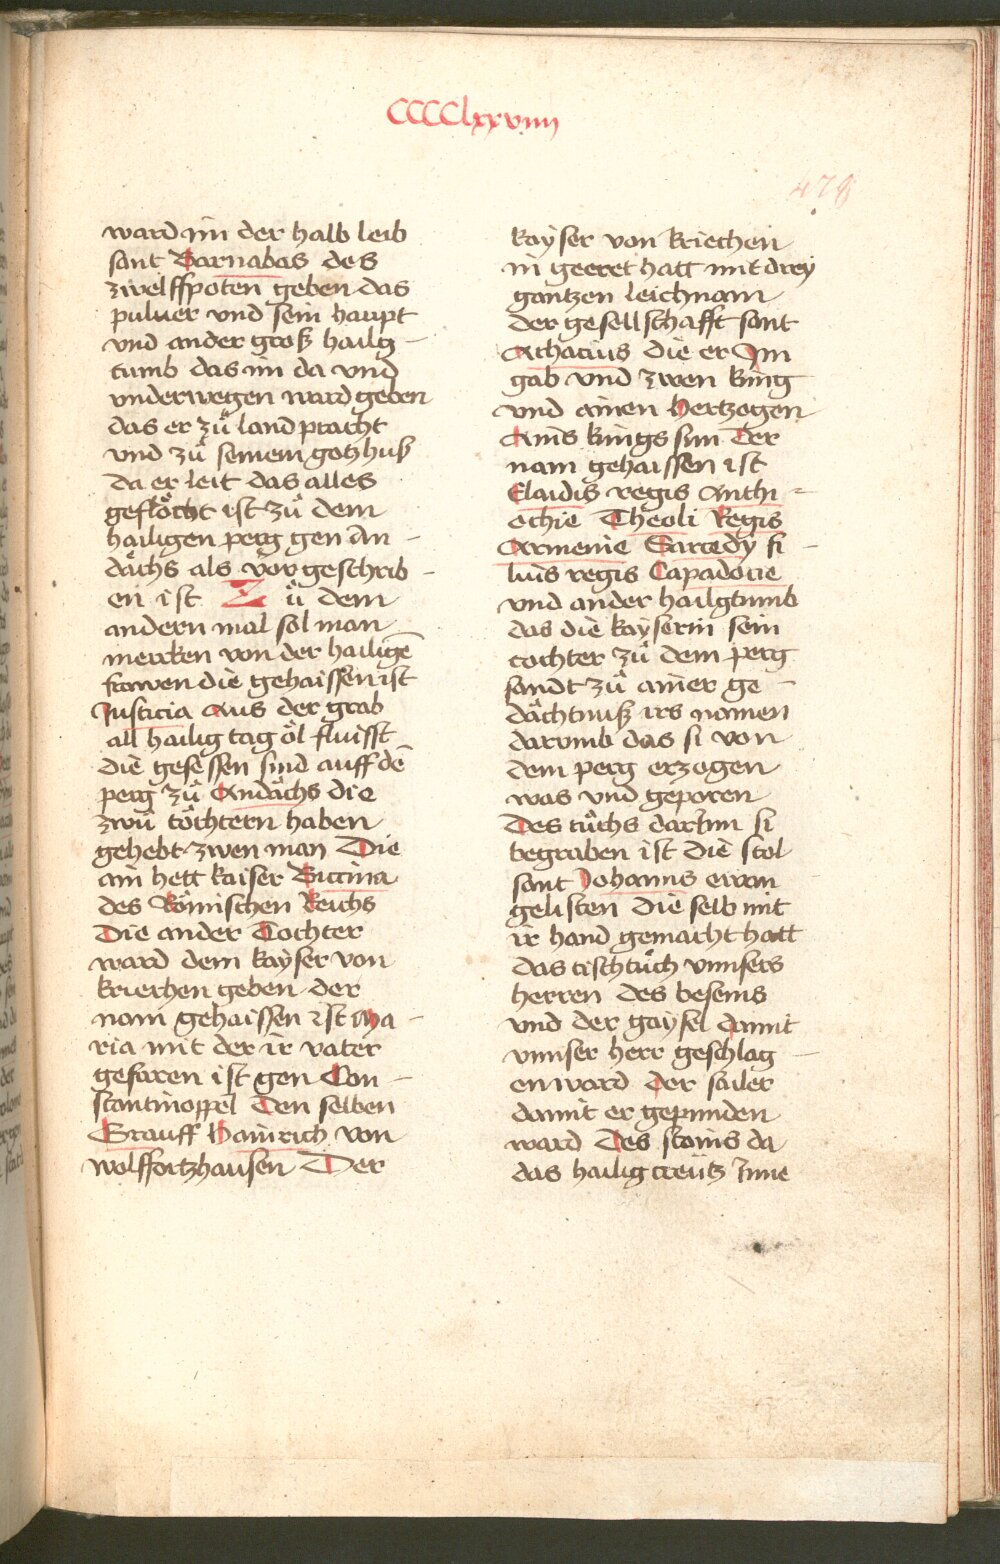 CCCClxxviiii
478
ward im der halb leib
sant Barnabas des
zwelffpoten geben das
puluer vnd sein haupt
vnd ander groß hailg-
tumb das im da vnd
vnderwegen ward geben
das er zů land pracht
vnd zů seinem gotzhuß
da er leit das alles
geflöcht ist zů dem
hailigen perg gen An-
dächs als vor geschrib-
en ist Zů dem
andern mal sol man
mercken von der hailigē
frawen die gehaissen ist
Justicia Aus der grab
all hailig tag öl flüsst
die gesessen sind auff dē
perg zů Andächs die
zwů töchtern haben
gehebt zwen man Die
ain hett kaiser
des Römischen Reichs
Die ander Tochter
ward dem kayser von
kriechen geben der
nam gehaissen ist Ma-
ria mit der ir vater
gefaren ist gen Con-
stantinoppel Den selben
Grauff Hainrich von
wolffortzhausen Der
kayser von kriechen
in geeret hatt mit drey
gantzen leichnam
der gesellschafft sant
Achacius die er Im
gab vnd zwen king
vnd ainen Hertzogen
Ains kings sun Der
nam gehaissen ist
Claidis regis Anthi-
ochie Theoli Regis
Armenie Sarcedy fi-
lius regis Capadocie
vnd ander hailgtumb
das die kayserin sein
tochter zů dem perg
sandt zů ainer ge-
dächtnuß irs namen
darumb das si von
dem perg erzogen
was vnd geporen
Des tůchs darInn si
begraben ist die stol
sant Johanns ewan
gelisten die selb mit
ir hand gemacht hatt
das tischtůch vnnsers
herren des besems
vnd der gaysel damit
vnnser herr geschlag-
en ward Der sailer
damit er gepunden
ward Des stains da
das hailig creütz Inne